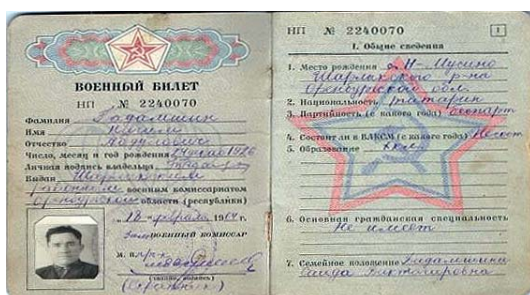 ВОЕННЫЙ БИЛЕТ
НП № 2240070
Фамилия Гадамшин
Имя
Отчество
Число, месяц и год рождения 1926
Личная подпись владельца
Выдан Шарлыкским
районным военным комиссариатом
Оренбургской области (республики)
февраля 1964 г.
ВОЕННЫЙ КОМИССАР
М. П.
(звание, подпись)
НП № 2240070 1
I. Общие сведения
1. Место рождения Н-Мусино
Шарлыкского р-на
Оренбургской обл.
2. Национальность татарин
3. Партийность (с какого года)
4. Состоит ли в ВЛКСМ (с какого года)
5. Образование
6. Основная гражданская специальность
Не имеет
7. Семейное положение Гадамшина